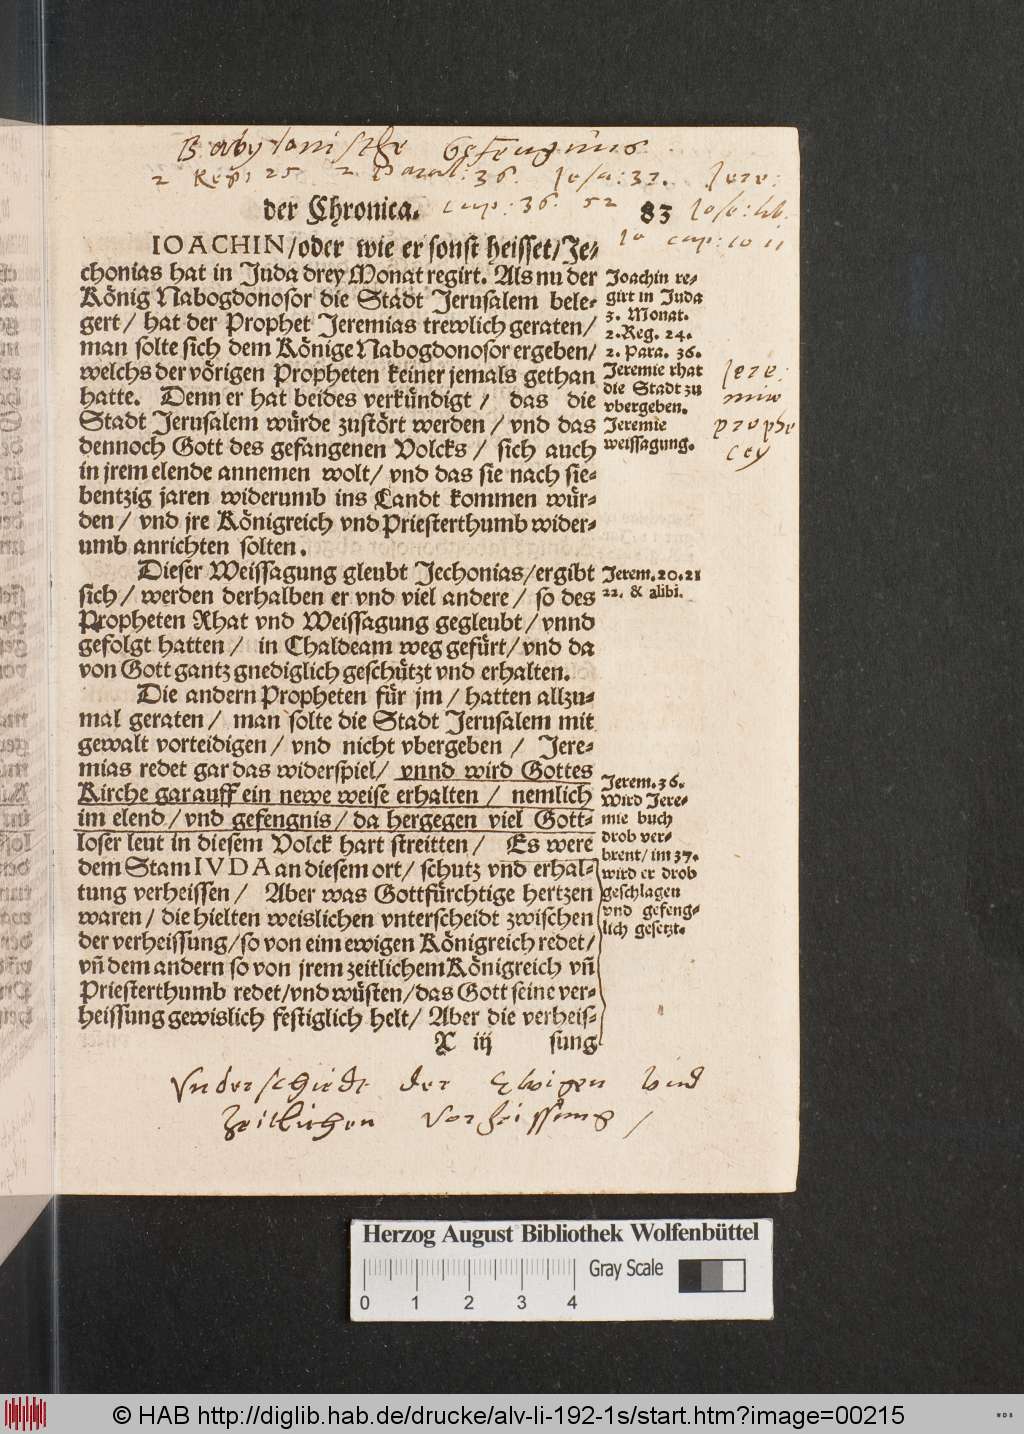 Babylonische Gefengnus
2 Reg: 25 2 Paral: 36. Jesa: 37. Jere:
der Chronica. cap: 36. 52 83 Jose: lib.
10 cap: 10 11
IOACHIN/oder wie er sonst heisset/Je⸗
chonias hat in Juda drey Monat regirt. Als nu der
König Nabogdonosor die Stadt Jerusalem bele⸗
gert/ hat der Prophet Jeremias trewlich geraten/
man solte sich dem Könige Nabogdonosor ergeben/
welchs der vörigen Propheten keiner jemals gethan
hatte. Denn er hat beides verkündigt/ das die
Stadt Jerusalem würde zustört werden/ vnd das
dennoch Gott des gefangenen Volcks/ sich auch
in jrem elende annemen wolt/ vnd das sie nach sie⸗
bentzig jaren widerumb ins Landt kommen wür⸗
den/ vnd jre Königreich vnd Priesterthumb wider⸗
umb anrichten solten.
Dieser Weissagung gleubt Jechonias/ergibt
sich/ werden derhalben er vnd viel andere/ so des
Propheten Rhat vnd Weissagung gegleubt/ vnnd
gefolgt hatten/ in Chaldeam weg gefürt/ vnd da
von Gott gantz gnediglich geschützt vnd erhalten.
Die andern Propheten für jm/ hatten allzu⸗
mal geraten/ man solte die Stadt Jerusalem mit
gewalt vorteidigen/ vnd nicht vbergeben/ Jere⸗
mias redet gar das widerspiel/ vnnd wird Gottes
Kirche gar auff ein newe weise erhalten/ nemlich
im elend/ vnd gefengnis/ da hergegen viel Gott⸗
loser leut in diesem Volck hart streitten/ Es were
dem Stam IVDA an diesem ort/ schutz vnd erhal⸗
tung verheissen/ Aber was Gottfürchtige hertzen
waren/ die hielten weislichen vnterscheidt zwischen
der verheissung/so von eim ewigen Königreich redet/
vñ dem andern so von jrem zeitlichem Königreich vñ
Priesterthumb redet/vnd wüsten/das Gott seine ver⸗
heissung gewislich festiglich helt/ Aber die verheis⸗
X iij sung
Joachin re⸗
girt in Juda
3. Monat.
2.Reg. 24.
2. Para. 36.
Jeremie rhat
die Stadt zu
vbergeben.
Jeremie
weissagung.
Jere:
miae
prophe
cey
Jerem. 20.21
22. & alibi.
Jerem. 36.
Wird Jere⸗
mie buch
drob ver⸗
brent/ im 37.
wird er drob
geschlagen
vnd gefeng⸗
lich gesetzt.
Vnderschiedt der Ewigen vnd
Zeitlichen Verheissung /
Herzog August Bibliothek Wolfenbüttel
Gray Scale
0 1 2 3 4
© HAB http://diglib.hab.de/drucke/alv-li-192-1s/start.htm?image=00215